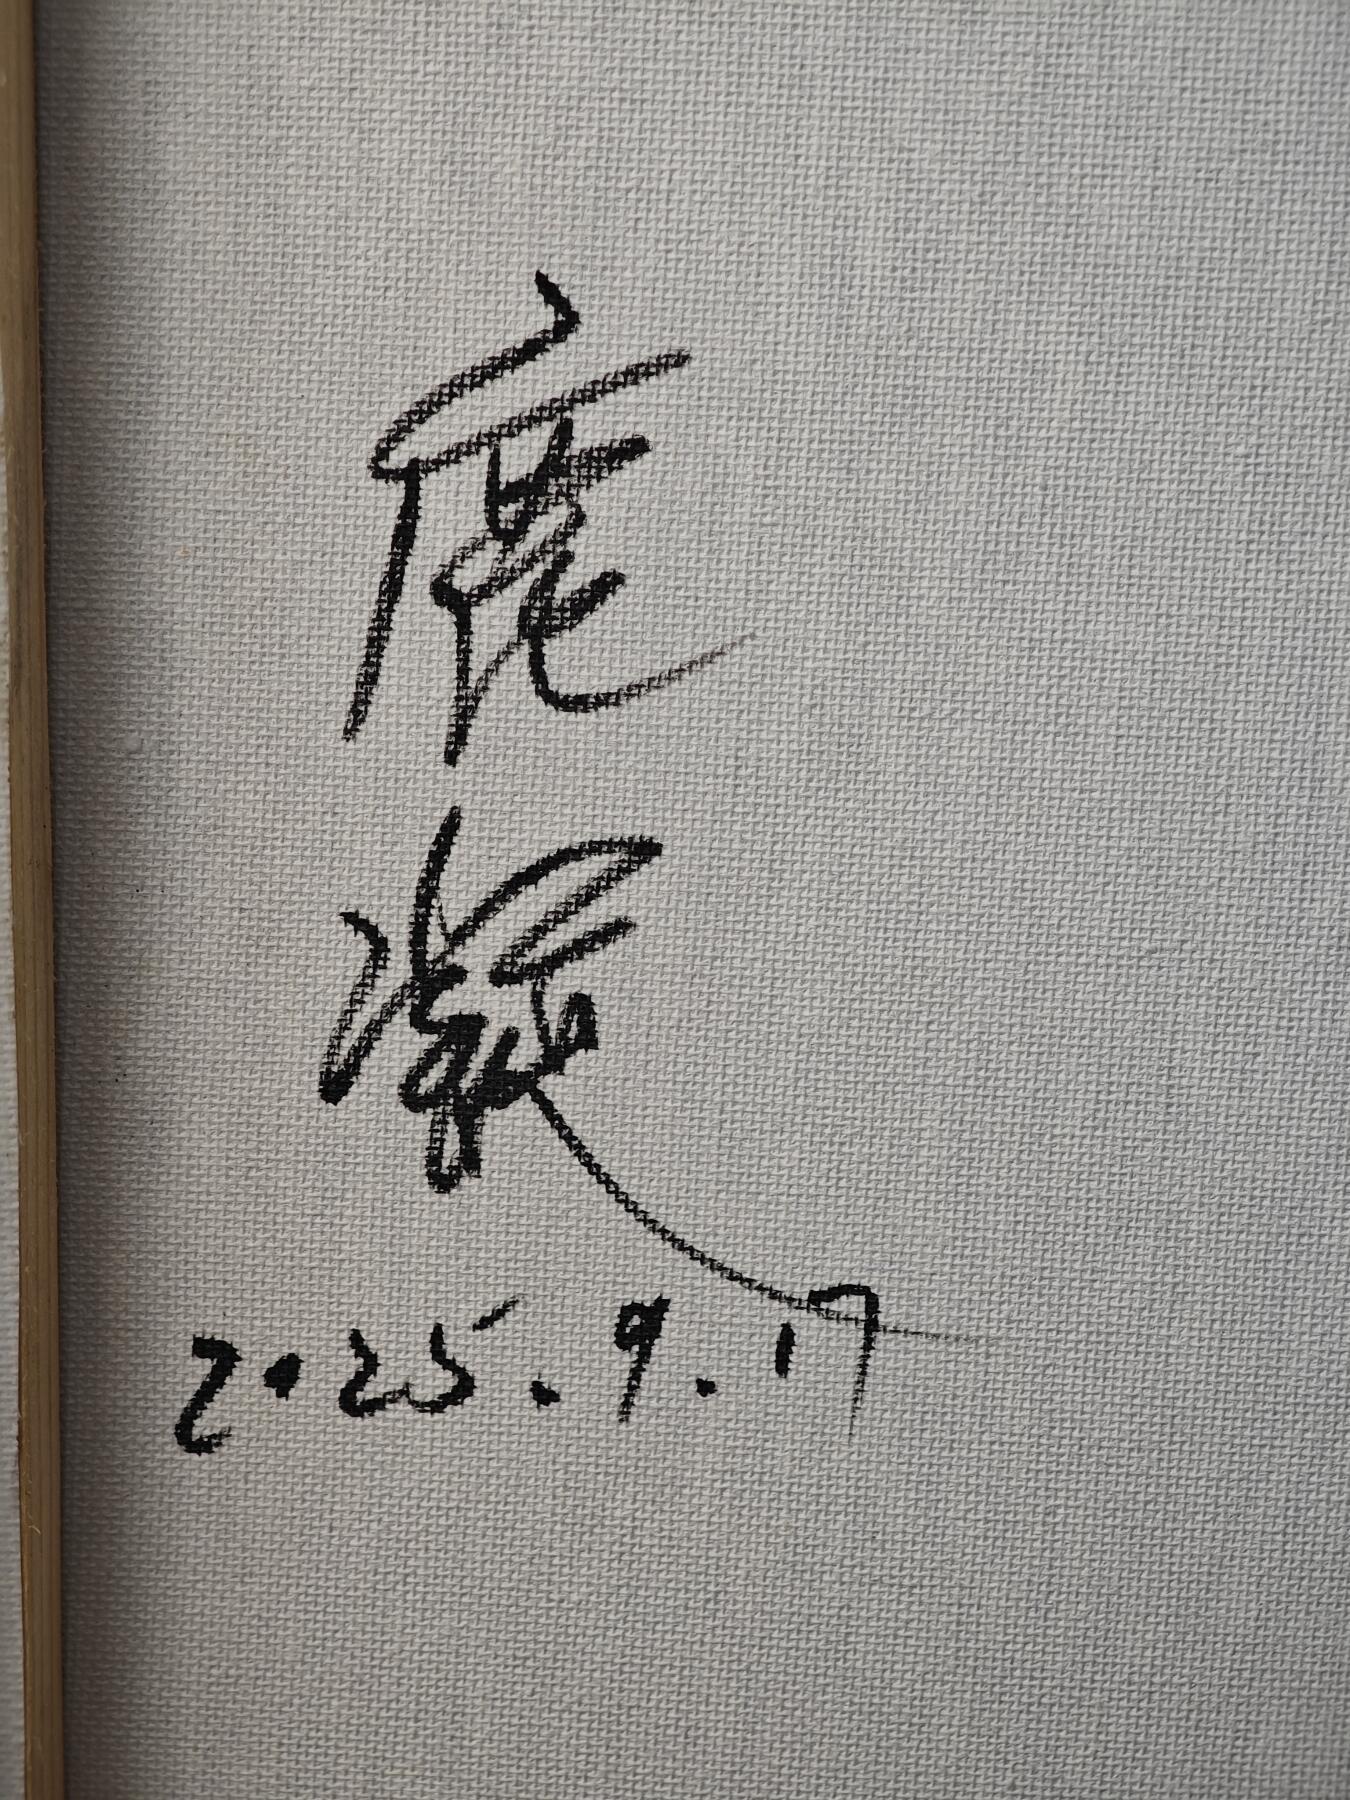 鹿凝
2025.9.17